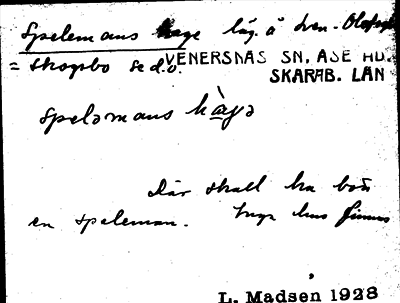 Spelemans hage läg. å Sven-Olofs
= Skopbo se d.o. VENERSNÄS SN, ÅSE HD.
SKARAB. LÄN
spelǝmans hàgǝ
Där skall ha bott
en speleman. Inga hus finnes
L. Madsen 1928